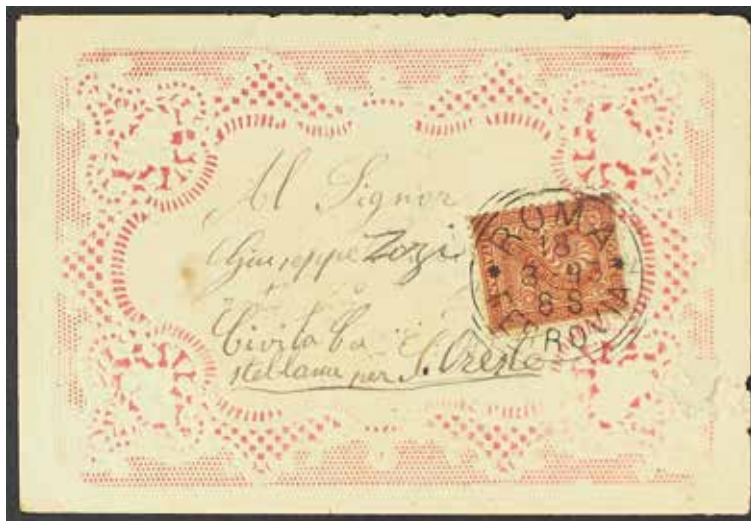 Al Signor
Giuseppe Zozi
Civita Ca
stellana per S. Oreste
ROMA
18
3 9
8S
FERROVIA